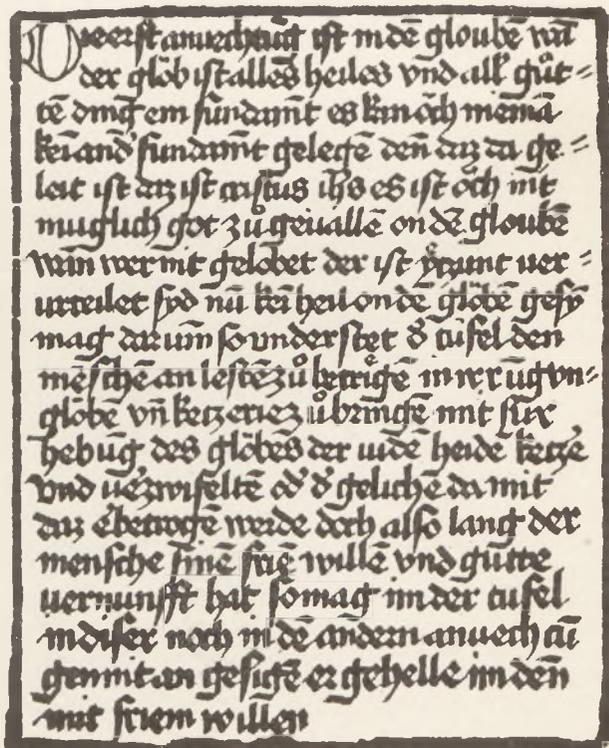 Die erst anuechtūg ist in dē gloubē wā
der glōb ist alles heiles vnd all' gůt⸗
tē ding ein fundamt̄ es kan ōch niemā
kei and' fundamt̄ gelegē den̄ daz da ge⸗
leit ist daz ist cristus ih̄s es ist ōch nit
muglich got zů geuallē on dē gloubē
wan wer nit gelōbet der ist yeczunt uer⸗
urteilet syd nū kei heil on dē glōbē gesÿ
mag darum̄ so understet d' tufel den
mēschē an lestē zů betriegē in irrūg vn⸗
glōbē vn̄ ketzerie zů bringē mit für
hebūg des glōbes der iudē heidē ketzē
vnd uerzwifeltē od' d' gelichē da mit
daz e' betrogē werde doch also lang der
mensche sinē friē willē vnd gůtte
uernunfft hat so mag im der tufel
in diser noch in dē andern anuechtū
gen nit an gesigē er gehelle im den̄
mit friem willen